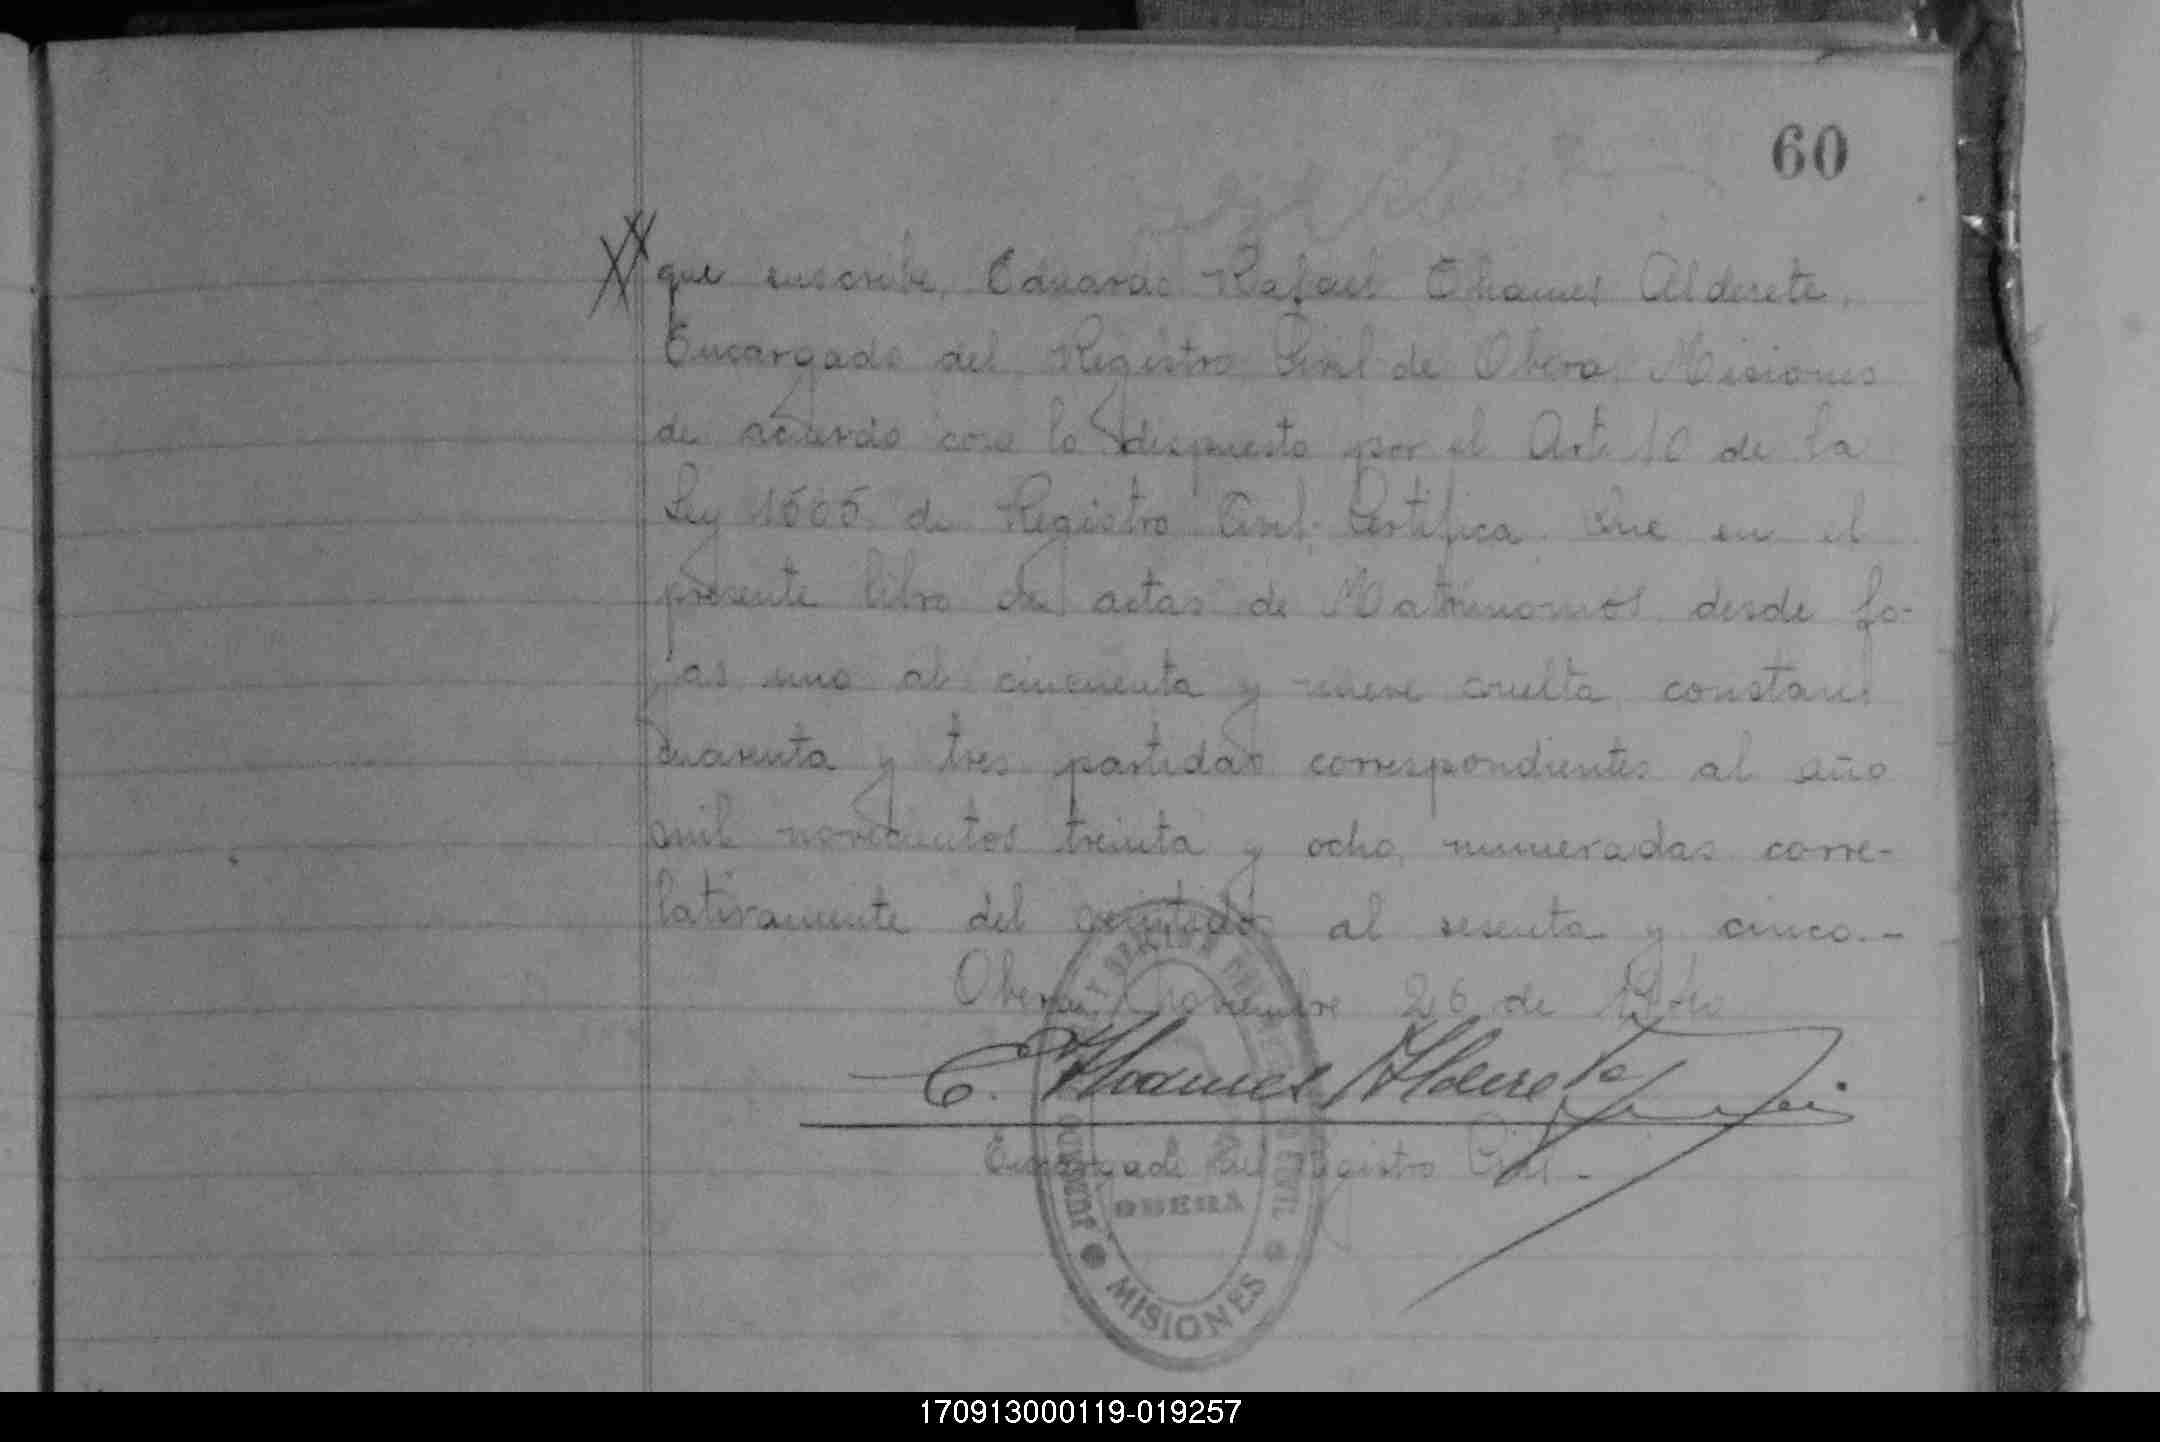 60
que suscribe, Eduardo Rafael Thames Alderete,
Encargado del Registro Civil de Obera, Misiones
de acuerdo con lo dispuesto por el Art. 10 de la
Ley 1565 de Registro Civil. Certifica: Que en el
presente libro de actas de Matrimonios, desde fo-
jas uno al cincuenta y nueve vuelta, constan
cuarenta y tres partidas correspondientes al año
mil novecientos treinta y ocho, numeradas corre-
lativamente del al sesenta y cinco.-
Obera, Noviembre 26 de
E. Thames Alderete
Encargado del Registro Civil.-
REGISTRO CIVIL
JUZGADO
OBERA
MISIONES
170913000119-019257